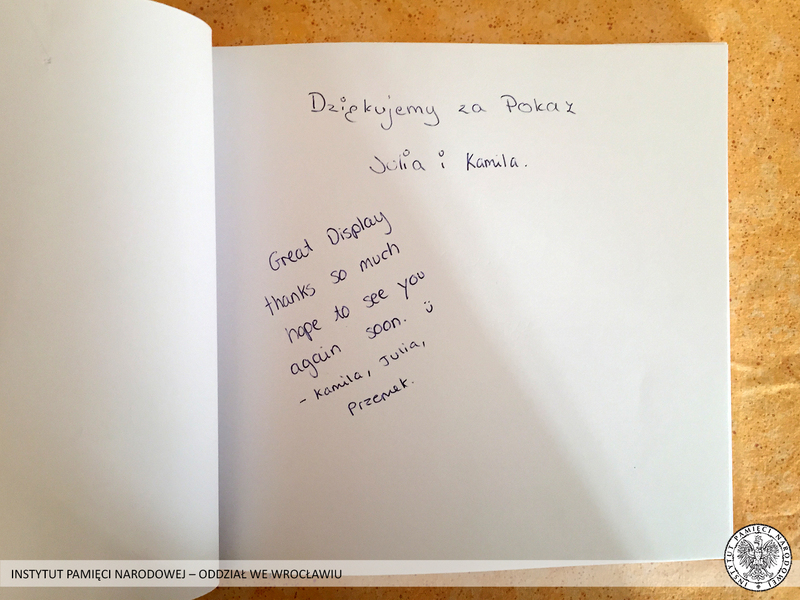 Dziękujemy za Pokaz
Julia i Kamila.
Great Display
thanks so much
hope to see you
again soon. ü
- Kamila, Julia,
Przemek.
INSTYTUT PAMIĘCI NARODOWEJ – ODDZIAŁ WE WROCŁAWIU
INSTYTUT PAMIĘCI NARODOWEJ